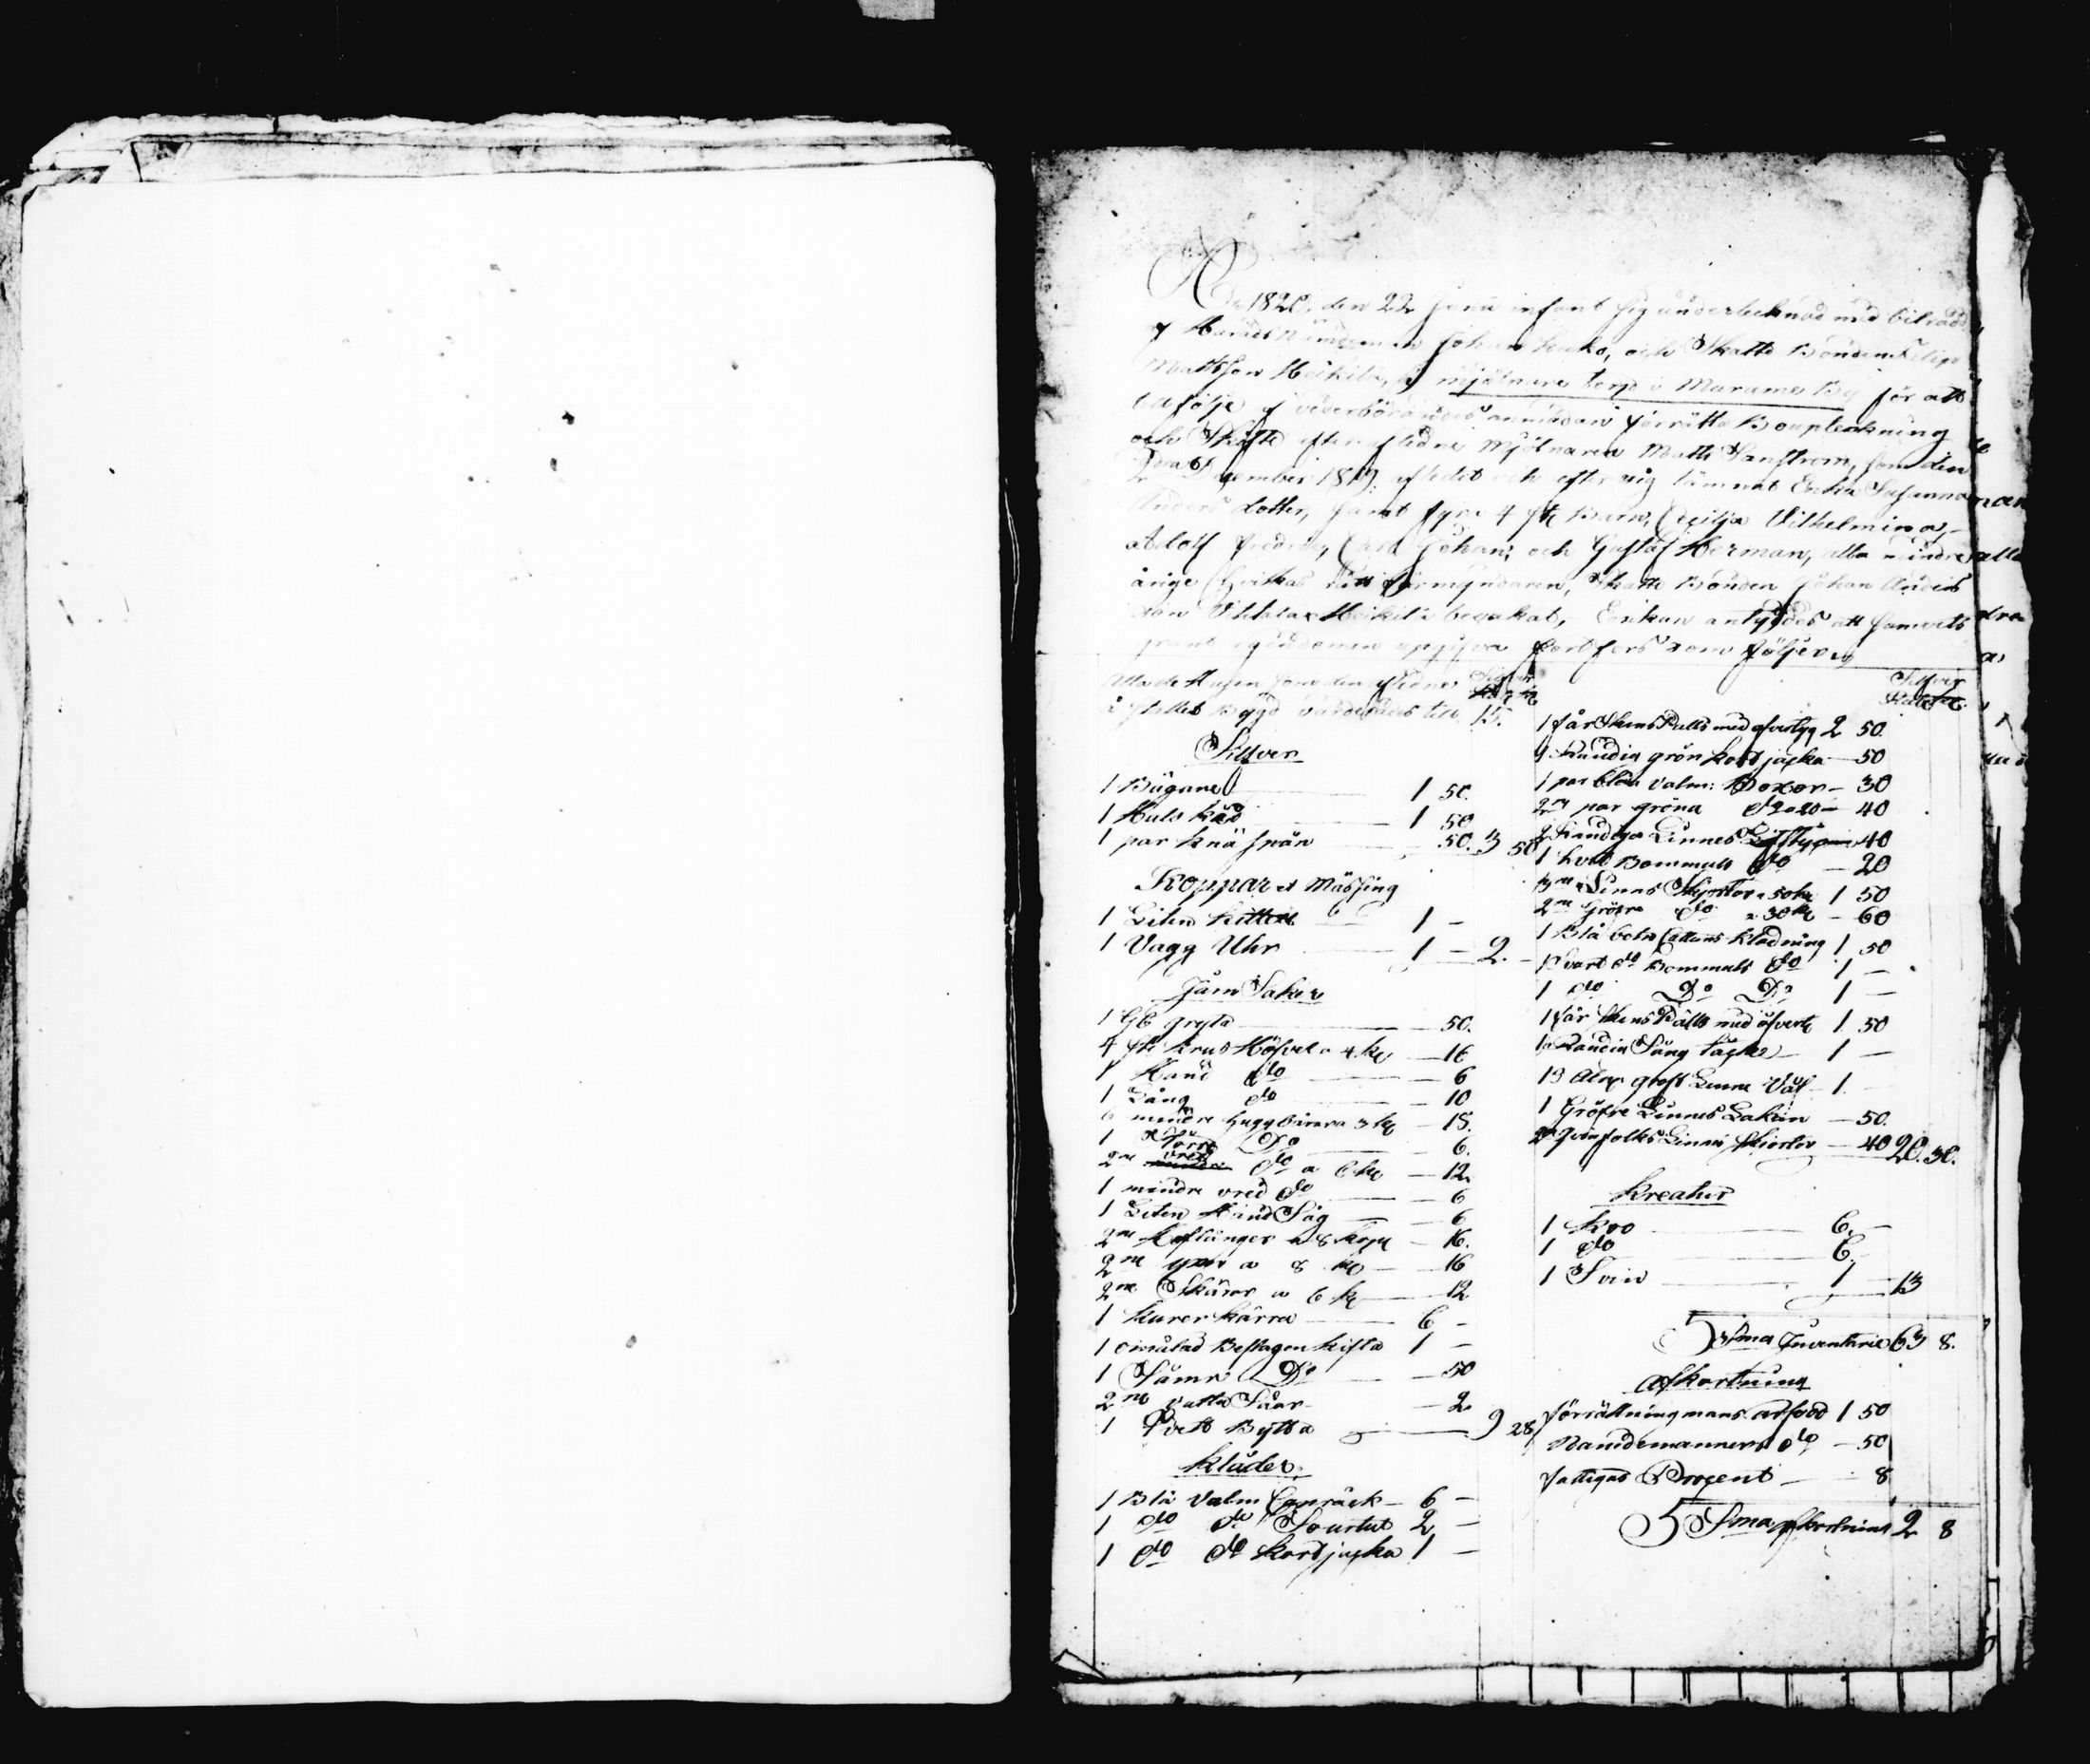 År 1820, den 22 Junii infant sig undertecknad med biträde
af Häradsnämdeman Johan kuko, och Skatte Bonden Filip
Mattsson Heikilä, å mjölnare torp i Maramo By för att
tafölje af vederbörandes anmädan förrätta Bouptekning
och Skifte efter afledne Mjölnaren Matts Sanstrom, som den
December 1819 afledit och efter sig lämnat Enka Susanna
Anders dotter, samt fyra 4 stk Barn, Cecilja Vilhelmina,
Adolf Fredrik, Carl Johan, och Gustaf Herman, alla mindre
årige hvilkas rätt förmyndaren, Skatte Bonden Johan Anders
son Heikilä bevakat, Enkan antyddes att samvets
grant egendomen upgifva fortfors som följer
Alla de Husen som den afledne
å stället Bygd värderades till 15.
Silver
1 Bügare 1 50.
1 Hals käd 1 50
1 par knä spän 50. 3 50
Koppar et Mässing
1 Liten kittel 1 -
1 Vagg Uhr 1 - 2. -
Järn Saker
1 gryta 50.
4 stk krus Höfvel a 4 ke 16
1 Hand do 6
1 Lång do 10
6 mindre hugg bärara 3 ke 15.
1 större Do 6.
2ne vred do a 6 ke 12
1 mindre vred do 6
1 Liten Hand Såg 6
2ne a 8 16.
2ne yxor a 8 ke 16
2ne Skäror a 6 k 12
1 kurer kärra 6 -
1 omålad Beslagen kista 1 -
1 Sämre Do 50
2ne vattu Såar 2
1 Bytta 9 28
Kläder
1 Blå Valm Capråck 6 -
1 do do Sourtut 2 -
1 do do kort jacka 1 -
Silver
1 får Skins Palts med ofvertyg 2 50.
1 Randig grön kort jacka 50
1 par blåa valm: Boxor 30
2ne par gröna do a 20 40
2 Randiga Linnes 40
1 hvit Bommuls do 20
3ne Linns Skjortor a 50 ke 1 50
2ne Gröfre do a 30 ke 60
1 Blå Cattuns Klädning 1 50
1 Svart do Bommuls do 1 -
1 do Do Do 1 -
1 får skins Pälts med öfvert 1 50
1 Randig Säng täcke 1 -
19 Alnr groft Linne Väf 1. -
1 Gröfre Linnes Lakan 50.
2ne qvinfolks Linnes skjortor 40 20. 30.
Kreatur
1 Koo 6. -
1 do 6. -
1 Svin 1 13
Sma Inventarie 63 8.
Afkortning
förrättningmans arfvod 1 50
Namdemannens do 50
fattigas Progent 8
Sma afkortning 2 8